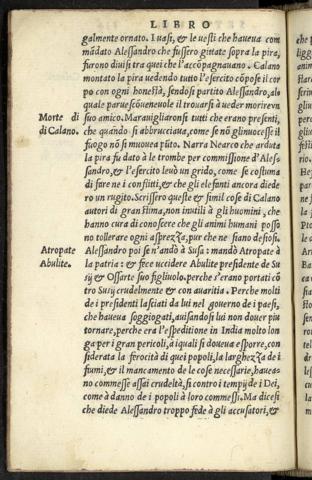 LIBRO
galmente ornato. I uasi, & le uesti che haueua com
mãdato Alessandro che fussero gittate sopra la pira,
furono diuisi tra quei che l'accõpagnauano. Calano
montato la pira uedendo tutto l'esercito cõpose il cor
po con ogni honestà, sendosi partito Alessandro, alo
quale parue scõueneuole il trouarsi à ueder morire vn
Morte di suo amico. Marauigliaronsi tutti che erano presenti,
di Calano. che quando si abbrucciaua, come se nõ gli nuocesse il
fuogo nõ si moueua pũto. Narra Nearco che arduta
la pira fu dato à le trombe per commissione d'Ales-
sandro, & l'esercito leuò un grido, come se costuma
di fare ne i conflitti, & che gli elefanti ancora diede
ro un rugito. Scrissero queste & simil cose di Calano
autori di gran stima, non inutili à gli huomini, che
hanno cura di conoscere che gli animi humani posso
no tollerare ogni asprezza, pur che ne siano desiosi.
Atropate Alessandro poi se n'andò à Susa: mandò Atropate à
Abulite. la patria: & fece uccidere Abulite presidente de Su
sij & Ossarte suo figliuolo. perche s'erano portati cõ
tro Susij crudelmente & con auaritia. Perche molti
de i presidenti lasciati da lui nel gouerno de i paesi,
che haueua soggiogati, auisandosi lui non douer piu
tornare, perche era l'espeditione in India molto lon
ga per i gran pericoli, à iquali si doueua esporre, con
siderata la ferocità di quei popoli, la larghezza de i
fiumi, & il mancamento de le cose necessarie, haueano
commesse assai crudeltà, si contro i tempij de i Dei,
come à danno de i popoli à loro commessi. Ma dicesi
che diede Alessandro troppo fede à gli accusatori, &